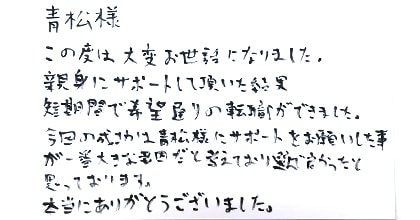 青松様
この度は大変お世話になりました。
親身にサポートして頂いた結果
短期間で希望通りの転職ができました。
今回の成功は青松様にサポートをお願いした事
が一番大きな要因だと考えており選んで良かったと
思っております。
本当にありがとうございました。